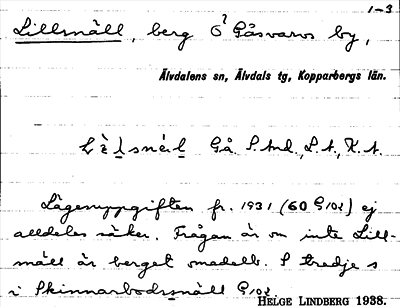 1-3
Lillsmäll, berg Ö? Gåsvarvs by,
Älvdalens sn, Älvdals tg, Kopparbergs län.
Gå S.And., L.A., K.A.
Lägesuppgiften fr. 1931 (60 G102) ej
alldeles säker. Frågan är om inte Lill-
smäll är berget omedelb. S tredje s
i Skinnarbodsmäll G102.
HELGE LINDBERG 1938.